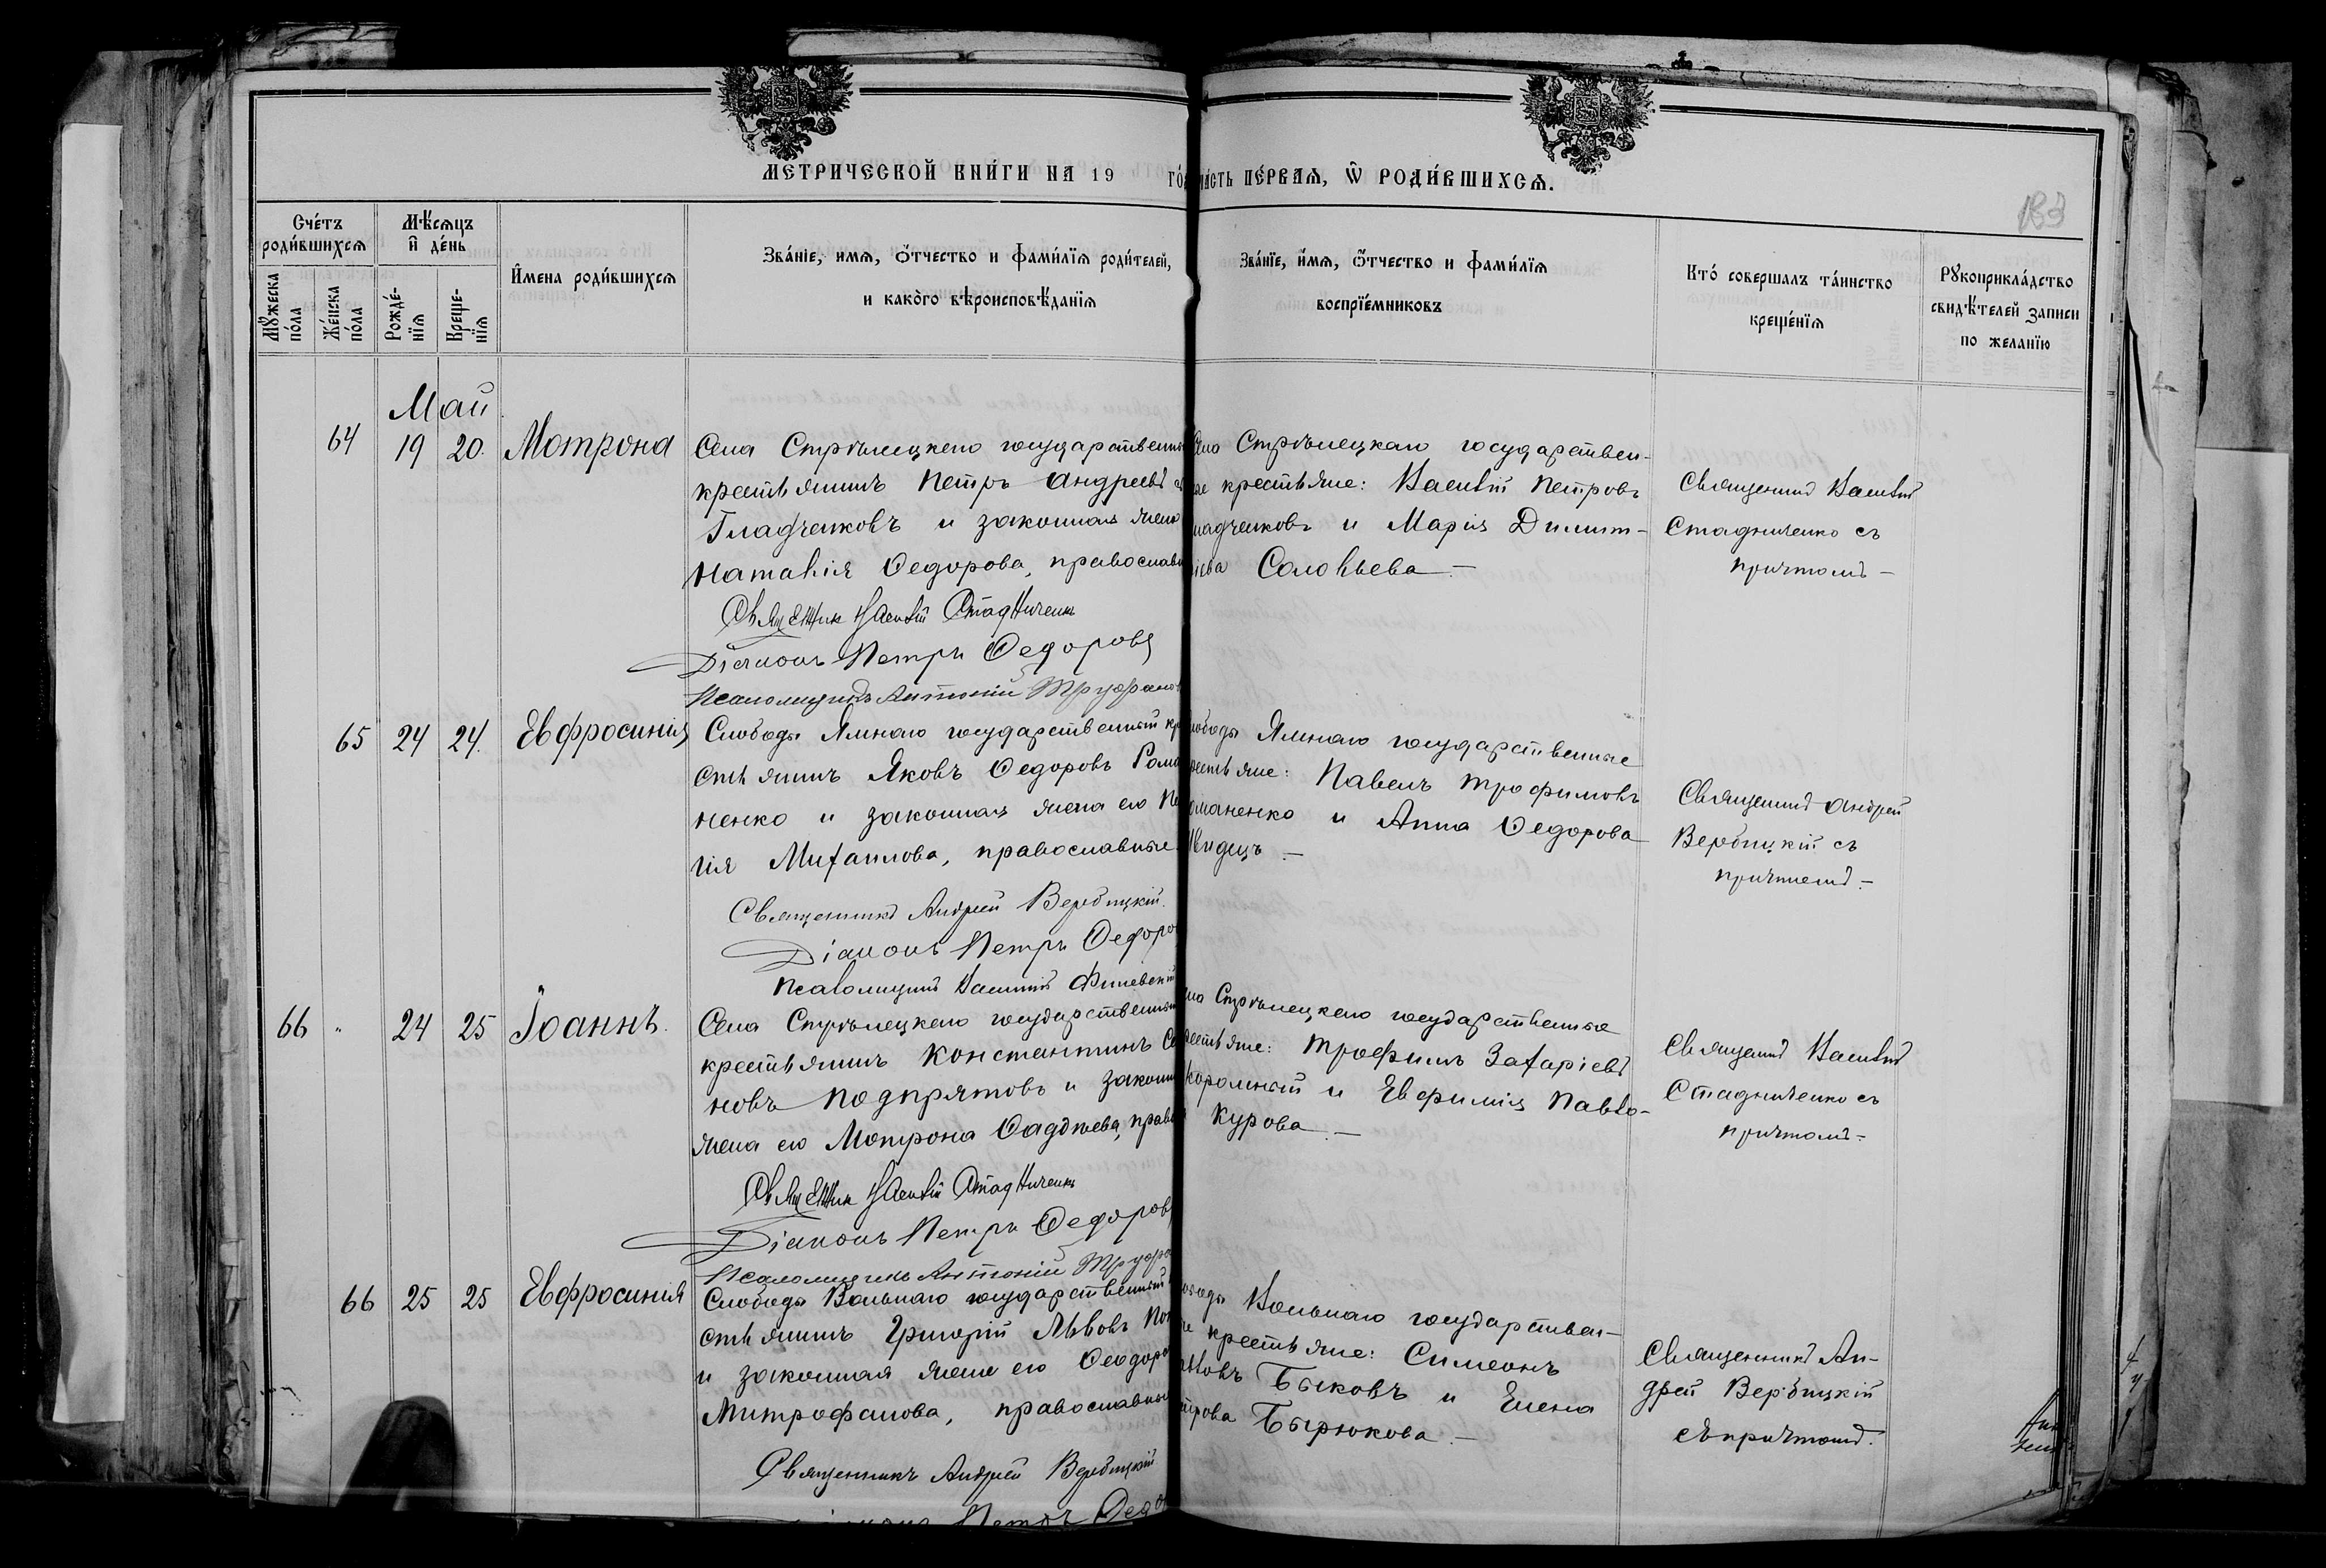 МЕТРИЧЕСКОЙ КНИ́ГИ НА 19 ГО́Д ЧА́СТЬ ПЕ́РВАѦ, Ѡ҆ РОДИ́ВШИХСѦ.
183
Сче́тъ роди́вшихсѧ
Мꙋ́жеска по́ла
Же́нска по́ла
Мѣ́сѧцъ и҆ де́нь
Рожде́-нїѧ
Креще-нїѧ
И҆мена роди́вшихсѧ
Зва́нїе, имѧ, ѻ҆́тчество и фами́лїѧ роди́телей,
и како́го вѣроисповѣ́данїѧ
Зва́нїе, и҆́мѧ, ѻ҆́тчество и фами́лїѧ
воспрїе́мниковъ
Кто́ совершалъ та́инство
креще́нїѧ
Рꙋкоприкла́дство
свидѣ́телей записи
по желанїю
Май
64 19 20. Мотрона
Села Стрѣлецкаго государственн
крестьянинъ Петръ Андреевъ
Гладченковъ и законная жена
Наталія Ѳедорова, православн
Священник Василій Стадниченк
Діаконъ Петръ Ѳедоровъ
Псаломщикъ Антоній Труфанов
Села Стрѣлецкаго государствен-
ые крестьяне: Василій Петровъ
ладченковъ и Марія Димит-
ріева Соловьева. —
Священникъ Василій
Стадниченко съ
причтомъ —
65 24 24. Евфросинія
Слободы Ямнаго государственный кр
стьянинъ Яковъ Ѳедоровъ Рома
ненко и законная жена его Пе
гія Михаилова, православные.
Священникъ Андрей Вербицкій.
Діаконъ Петръ Ѳедоро
Псаломщикъ Василій Финевскій
лободы Ямнаго государственные
рестьяне: Павелъ Трофимовъ
оманенко и Анна Ѳедорова
Швидецъ —
Священникъ Андрей
Вербицкій съ
причтомъ —
66 " 24 25 Іоаннъ.
Села Стрѣлецкаго государственный
крестьянинъ Константинъ Се
новъ Подпрятовъ и законн
жена его Мотрона Ѳаддѣева, право
Священник Василій Стадниченк
Діаконъ Петръ Ѳедоров
Псаломщикъ Антоній Труфа
ла Стрѣлецкаго государственные
рестьяне: Трофимъ Захаріевъ
и Евфимія Павло-
Курова. —
Священникъ Василій
Стадниченко съ
причтомъ —
66 25 25 Евфросинія
Слободы Вольнаго государственный
стьянинъ Григорій Львовъ
и законная жена его Ѳеодора
Митрофанова, православны
Священникъ Андрей Вербицкій
Петръ Ѳедо
ободы Вольнаго государствен-
е крестьяне: Симеонъ
Быковъ и Елена
трова Бырюкова. —
Священникъ Ан-
дрей Вербицкій
съ причтомъ.